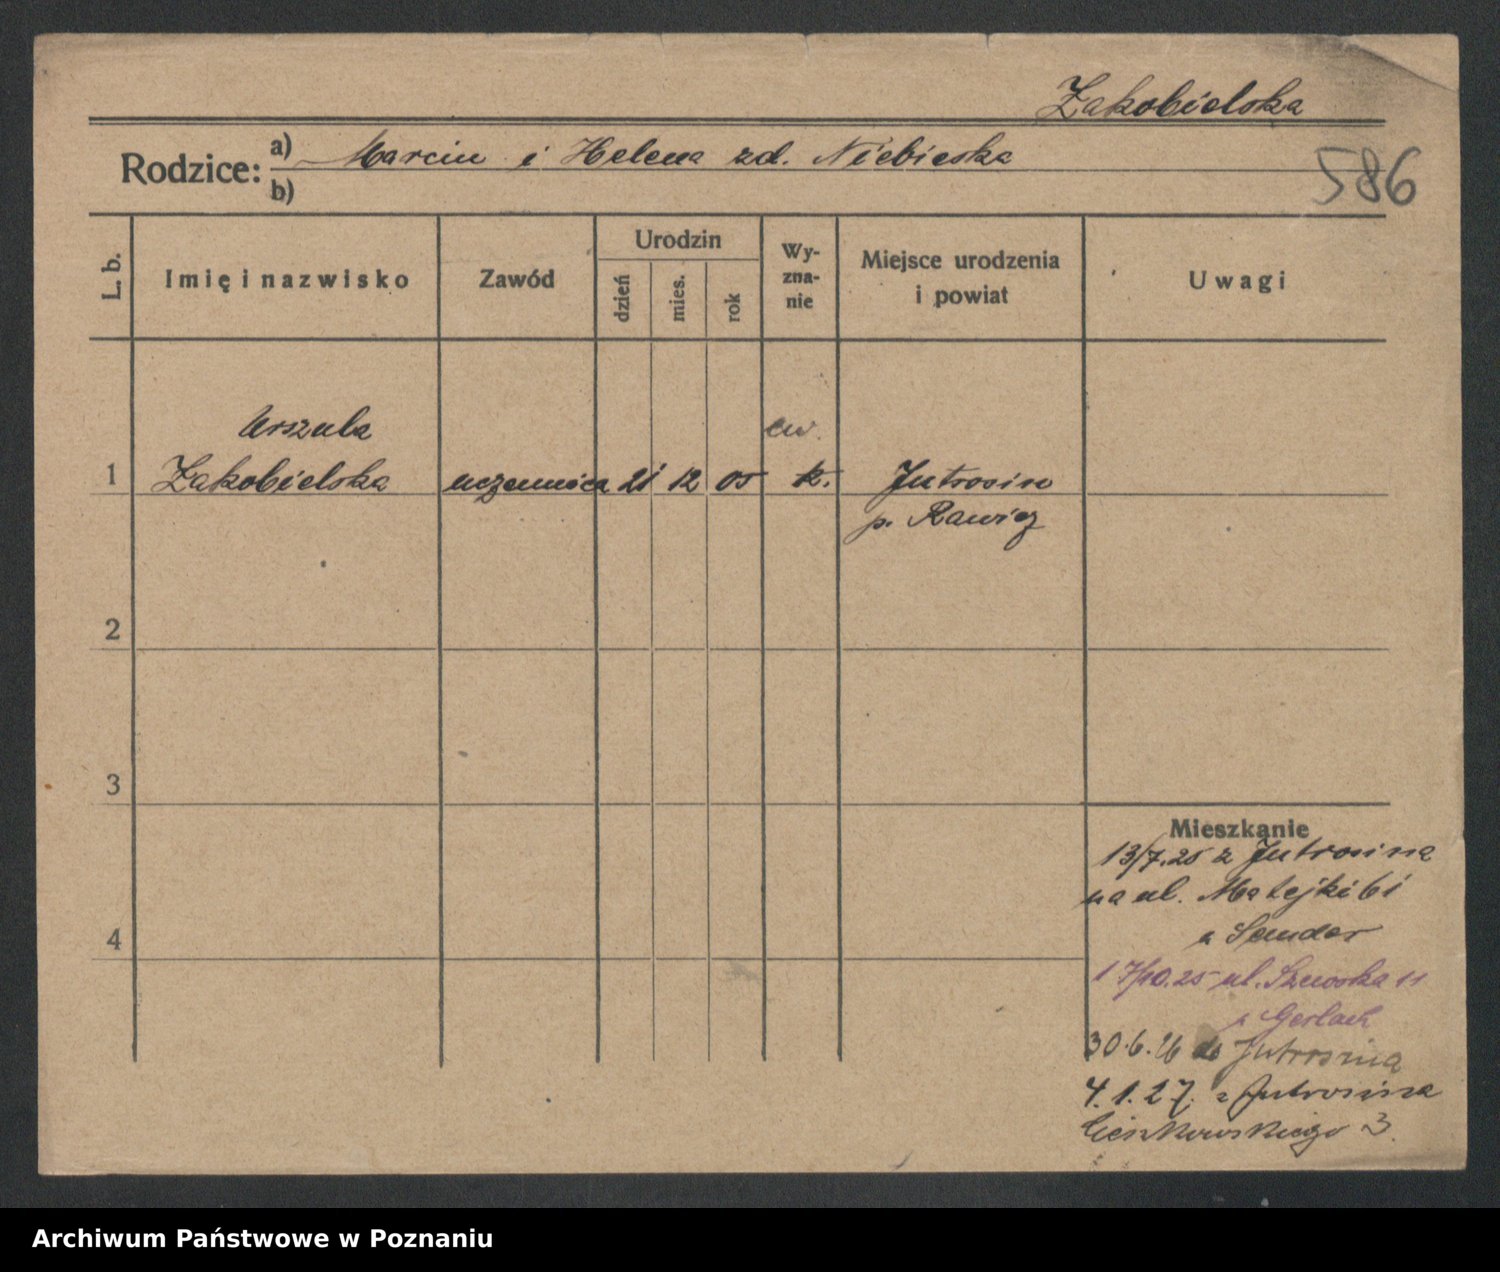 Zakobielska
Rodzice: a) Marcin i Helena zd. Niebieska
b)
586
L. b.
Imię i nazwisko
Zawód
Urodzin
dzień
mies.
rok
Wy-
zna-
nie
Miejsce urodzenia
i powiat
Uwagi
Urszula
ew.
1 Zakobielska uczennica 21 12 05 k. Jutrosin
p. Rawicz
2
3
4
Mieszkanie
13/7.25 z Jutrosina
na ul. Matejki 61
u Sander
17/10.25 ul. 11
u Gerlach
30.6.26 do Jutrosina
4.1.27. z Jutrosina
Cieszkowskiego 3.
Archiwum Państwowe w Poznaniu